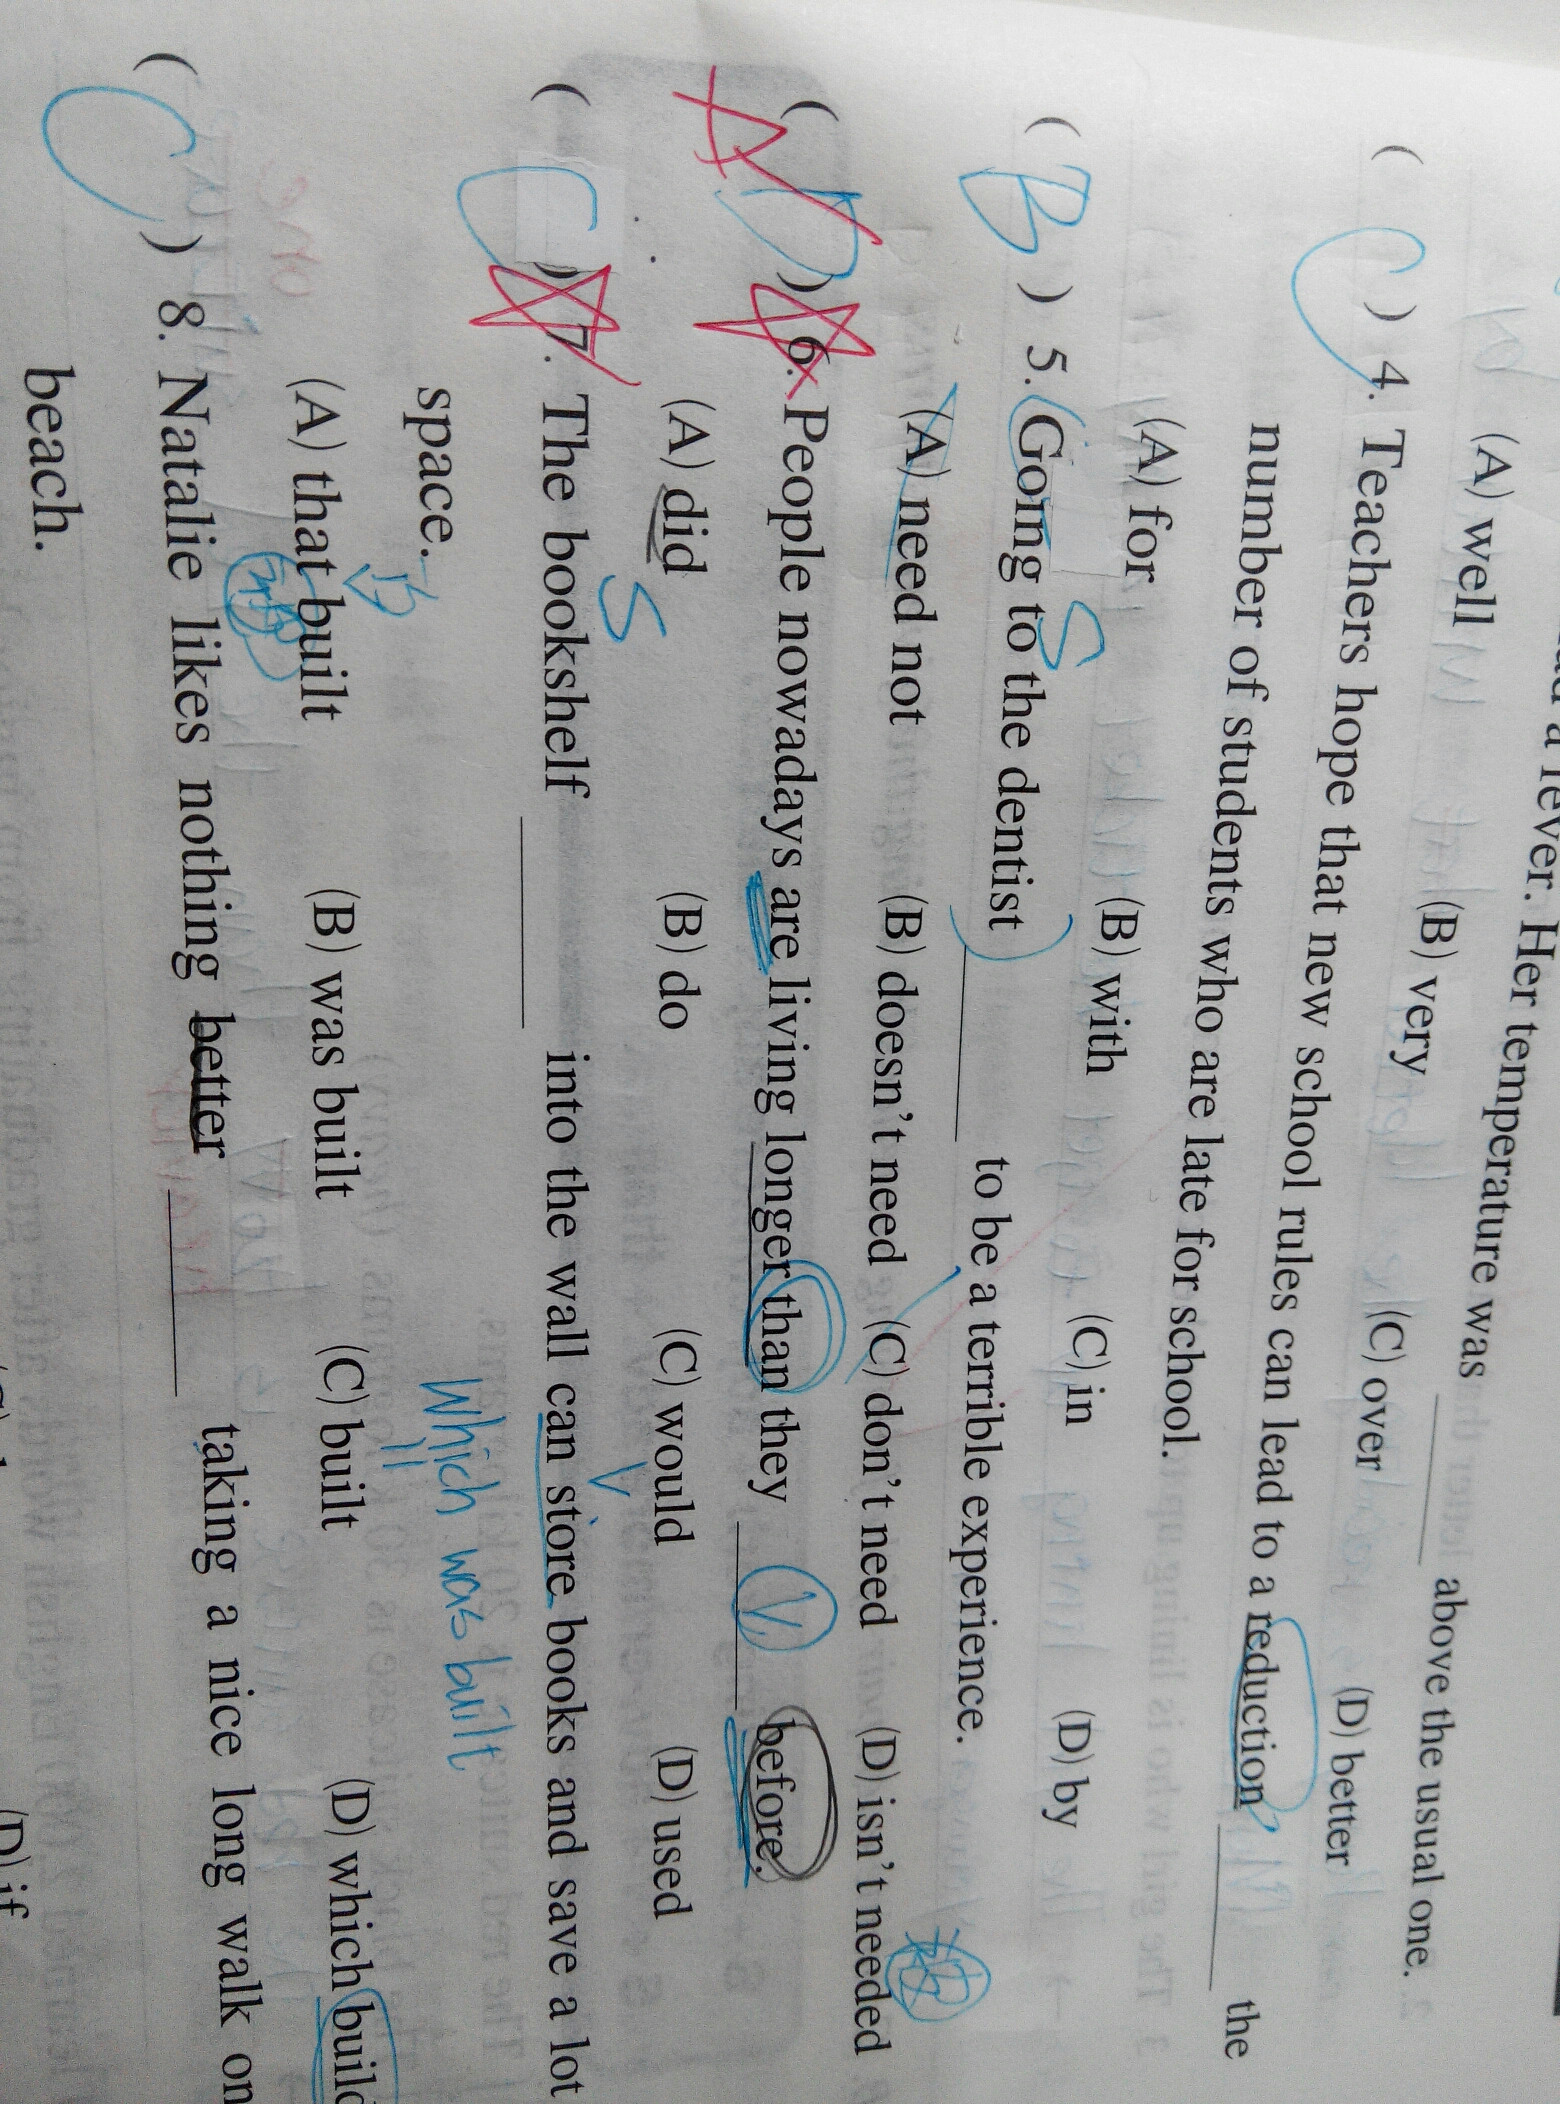 a fever. Her temperature was ______ above the usual one.
(A) well (B) very (C) over (D) better
( C ) 4. Teachers hope that new school rules can lead to a reduction ______ the
number of students who are late for school.
(A) for (B) with (C) in (D) by
( B ) 5. Going to the dentist ______ to be a terrible experience.
S
(A) need not (B) doesn't need (C) don't need (D) isn't needed
A
( D ) 6. People nowadays are living longer than they ______ before.
V
(A) did (B) do (C) would (D) used
S
V
( C ) 7. The bookshelf ______ into the wall can store books and save a lot
space.
which was built
(A) that built (B) was built (C) built (D) which build
( C ) 8. Natalie likes nothing better ______ taking a nice long walk on
beach.
(D) if